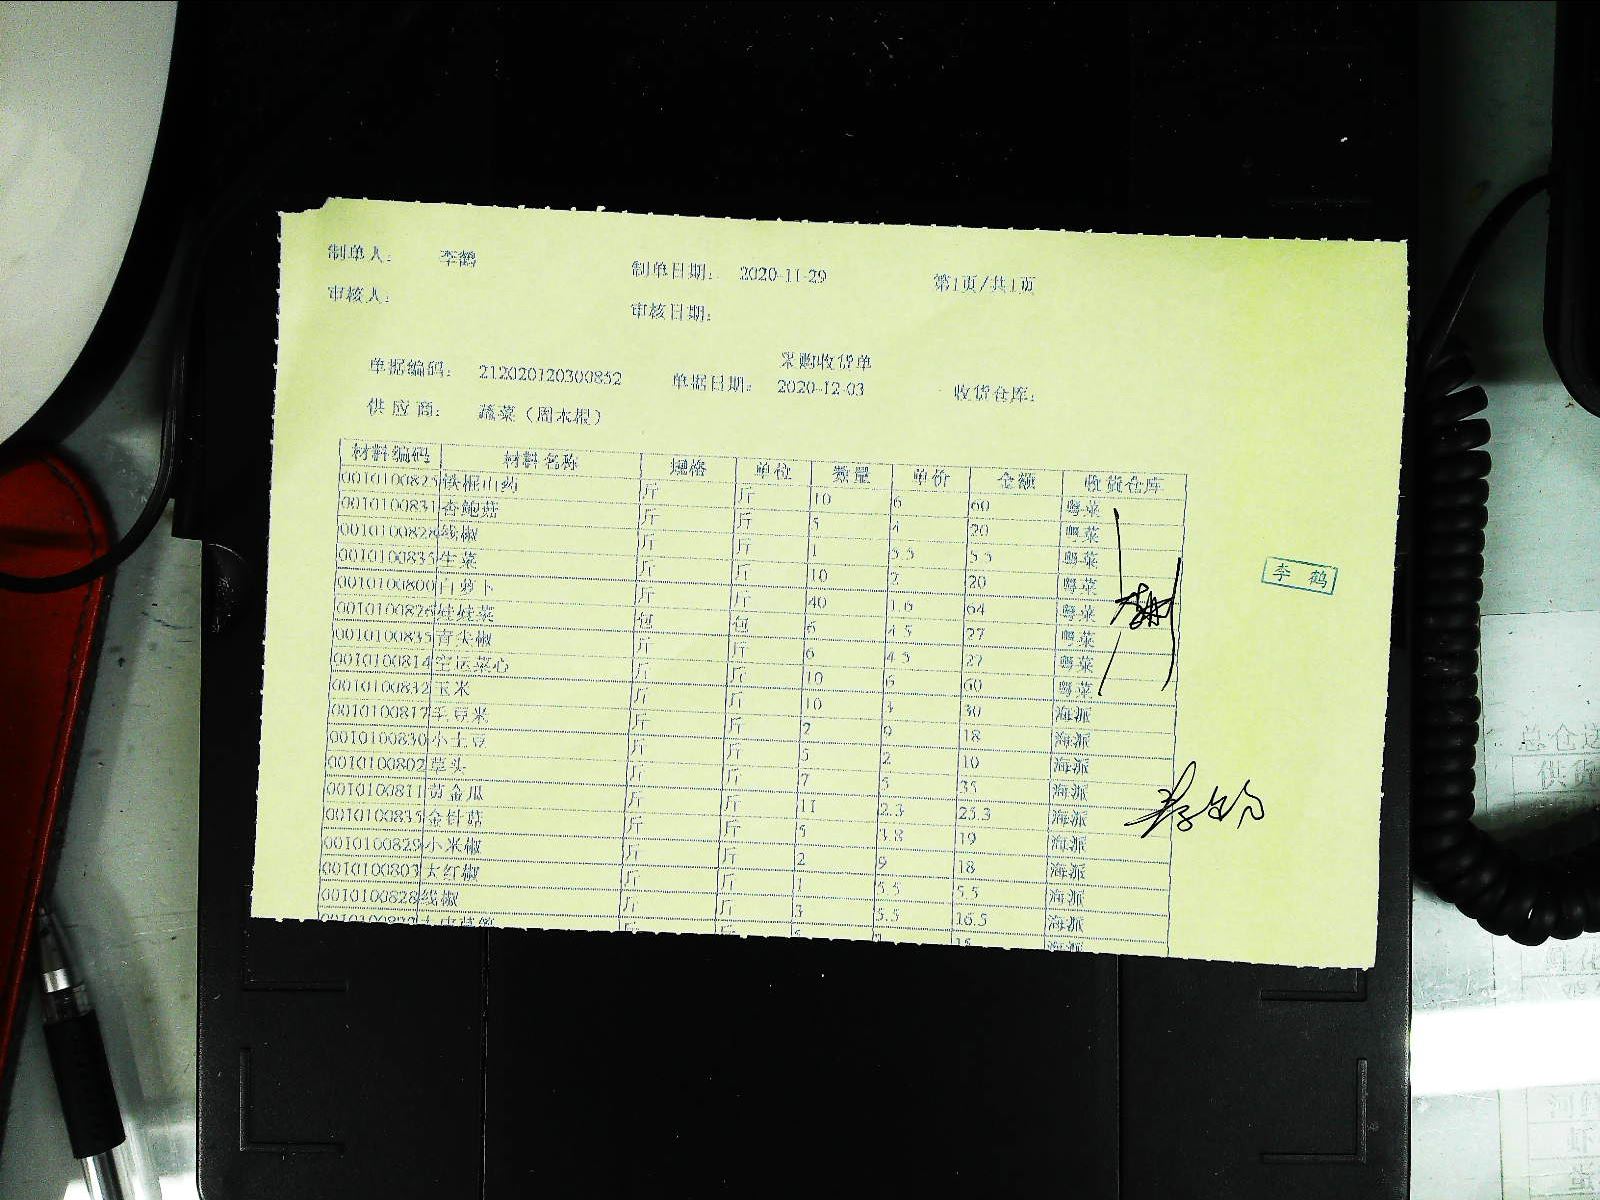 制单人: 李鹤 制单日期: 2020-11-29 第1页/共1页
审核人: 审核日期:
采购收货单
单据编码: 212020120300852 单据日期: 2020-12-03 收货仓库:
供应商: 蔬菜（周木根）
材料编码 材料名称 规格 单位 数量 单价 金额 收货仓库
0010100825 铁棍山药 斤 斤 10 6 60 粤菜
0010100831 杏鲍菇 斤 斤 5 4 20 粤菜
0010100828 线椒 斤 斤 1 5.5 5.5 粤菜
0010100835 生菜 斤 斤 10 2 20 粤菜
0010100800 白萝卜 斤 斤 40 1.6 64 粤菜
0010100826 娃娃菜 包 包 6 4.5 27 粤菜
0010100835 青尖椒 斤 斤 6 4.5 27 粤菜
0010100814 空运菜心 斤 斤 10 6 60 粤菜
0010100832 玉米 斤 斤 10 3 30 海派
0010100817 毛豆米 斤 斤 2 9 18 海派
0010100830 小土豆 斤 斤 5 2 10 海派
0010100802 草头 斤 斤 7 5 35 海派
0010100811 黄金瓜 斤 斤 11 2.3 25.3 海派
0010100835 金针菇 斤 斤 5 3.8 19 海派
0010100829 小米椒 斤 斤 2 9 18 海派
0010100803 大红椒 斤 斤 1 5.5 5.5 海派
0010100828 线椒 斤 斤 3 5.5 16.5 海派
斤 斤 15 海派
李 鹤
总仓送
供货